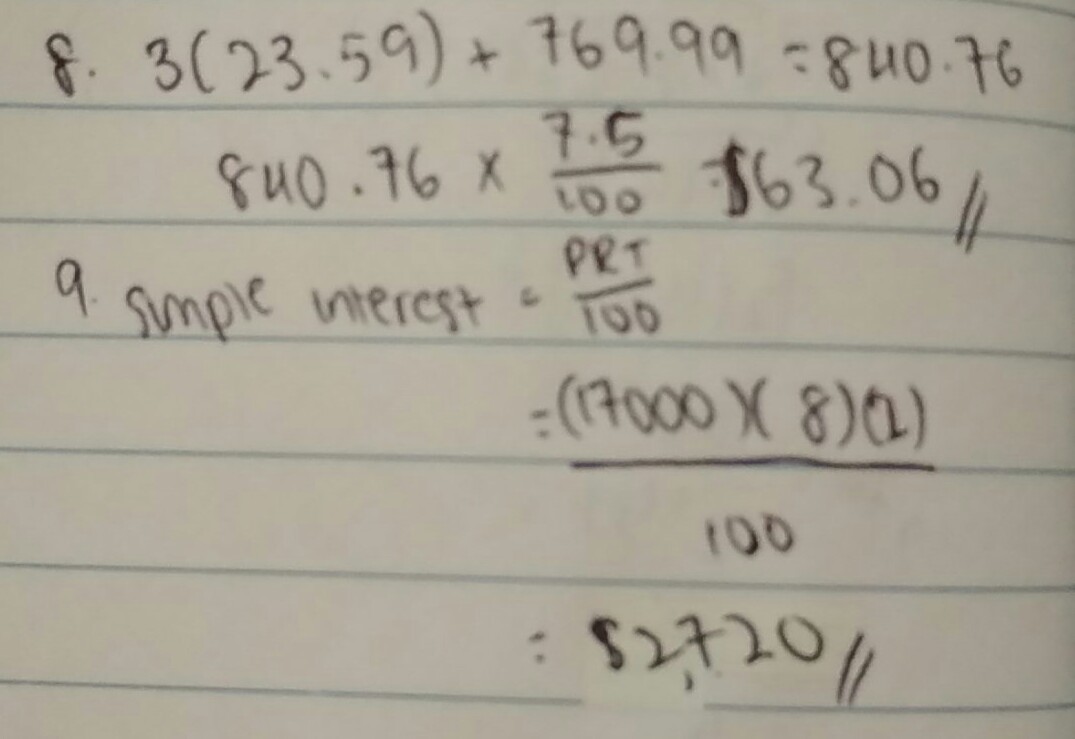 8. 3(23.59) + 769.99 = 840.76
840.76 x 7.5/100 = $63.06 //
9. simple interest = PRT/100
= (17000)(8)(2)
100
= $2,720 //